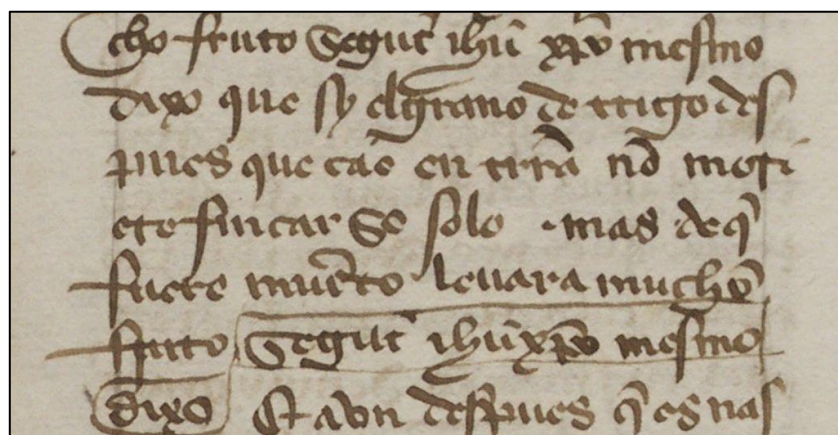 cho fruto Segut ihũ xp̃o mesmo
dixo que sy el grano de trigo des
pues que cae en trr̃a nõ mori
ere fincar se solo . mas de q̃
fuere muẽrto leuara muchõ
fruto Segut ihũ xp̃o mesmo
dixo Et avn despues q̃ es nas